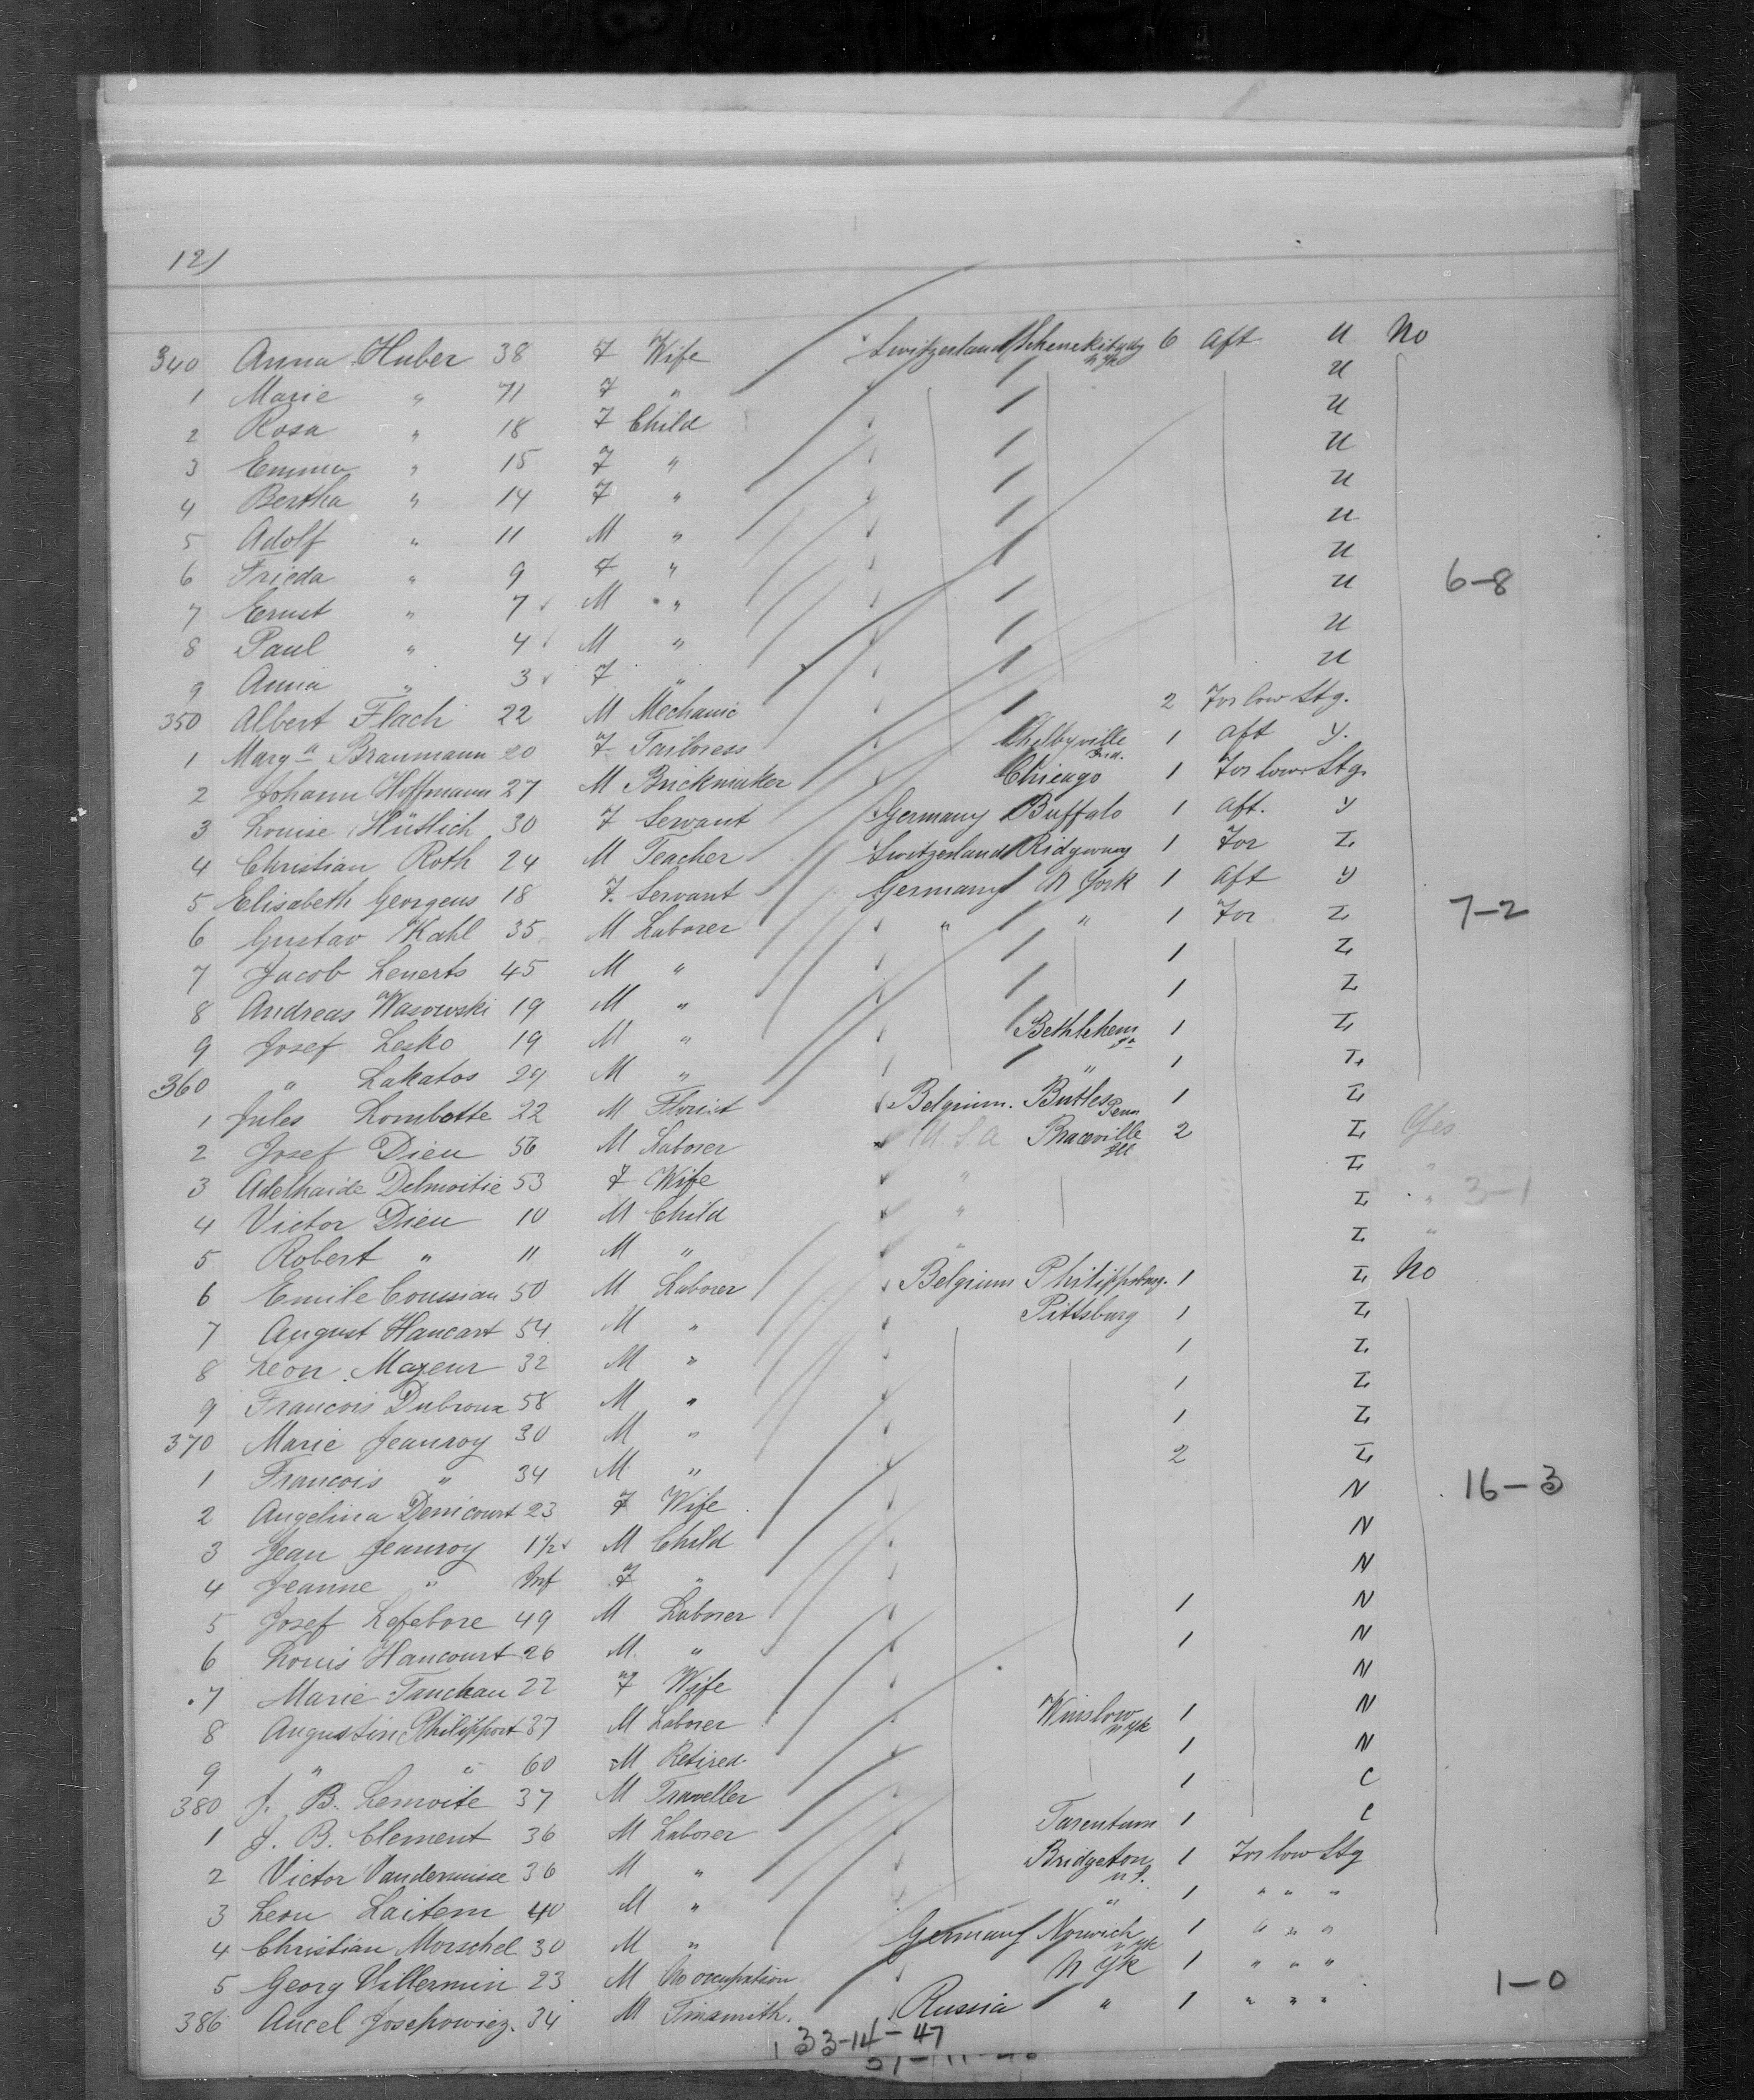 12/
340 Anna Huber 38 F Wife Switzerland Schenekitady N Yk 6 Aft U No
1 Marie " 71 F " U
2 Rosa " 18 F Child U
3 Emma " 15 F " U
4 Bertha " 14 F " U
5 Adolf " 11 M " U
6 Frieda " 9 F " U
7 Ernst " 7 M " U 6-8
8 Paul " 4 M " U
9 Anna " 3 F " U
350 Albert Flach 22 M Mechanic 2 For low Stg.
1 Marg a Braumann 20 F Tailoress Shelbyville Ind. 1 Aft y.
2 Johann Hoffmann 27 M Brickmaker Chicago 1 For lower Stg.
3 Louise Hütlich 30 F Servant Germany Buffalo 1 Aft. y
4 Christian Roth 24 M Teacher Switzerland Ridgway 1 For Z
5 Elisabeth Georgens 18 F. Servant Germany N York 1 Aft y
6 Gustav Kahl 35 M Laborer " " 1 For Z 7-2
7 Jacob Lenerts 45 M " 1 Z
8 Andreas Wasowski 19 M " 1 Z
9 Josef Lesko 19 M " Bethlehem Pa 1 Z
360 " Lakatos 29 M " " 1 Z
1 Jules Lombotte 22 M Florist Belgium. Butler Penn 1 Z
2 Josef Dieu 56 M Laborer U. S. A Braceville Ill 2 Z Yes
3 Adelhaide Delmoitie 53 F Wife " Z "
4 Victor Dieu 10 M Child " Z " 3-1
5 Robert " 11 M " " Z "
6 Emile Coussian 50 M Laborer Belgium Philippsburg. 1 Z No
7 August Hancart 54 M " Pittsburg 1 Z
8 Leon Mayeur 32 M " 1 Z
9 Francois Dubroux 58 M " 1 Z
370 Marie Jeanroy 30 M " 1 Z
1 Francois " 34 M " 2 Z
2 Angelina Denicourt 23 F Wife N 16-3
3 Jean Jeanroy 1 1/2 M Child N
4 Jeanne " Inf F " N
5 Josef Lefebore 49 M Laborer 1 N
6 Louis Hancourt 26 M. " 1 N
7 Marie Tanchau 22 F Wife N
8 Augustin Philippart 37 M Laborer Winslow N Yk 1 N
9 " " 60 M Retired. 1 N
380 J. B. Lemoite 37 M Traveller 1 C
1 J. B. Clement 36 M Laborer Tarentum 1 C
2 Victor Vandermisse 36 M " Bridgeton N J. 1 For low Stg
3 Leon Laitem 40 M " " 1 " " "
4 Christian Morschel 30 M " Germany Norwich N Yk 1 " " "
5 Georg Villermin 23 M No occupation N Yk 1 " " "
386 Ancel Josepowicz. 34 M Tinsmith. Russia " 1 " " " 1-0
33-14-47